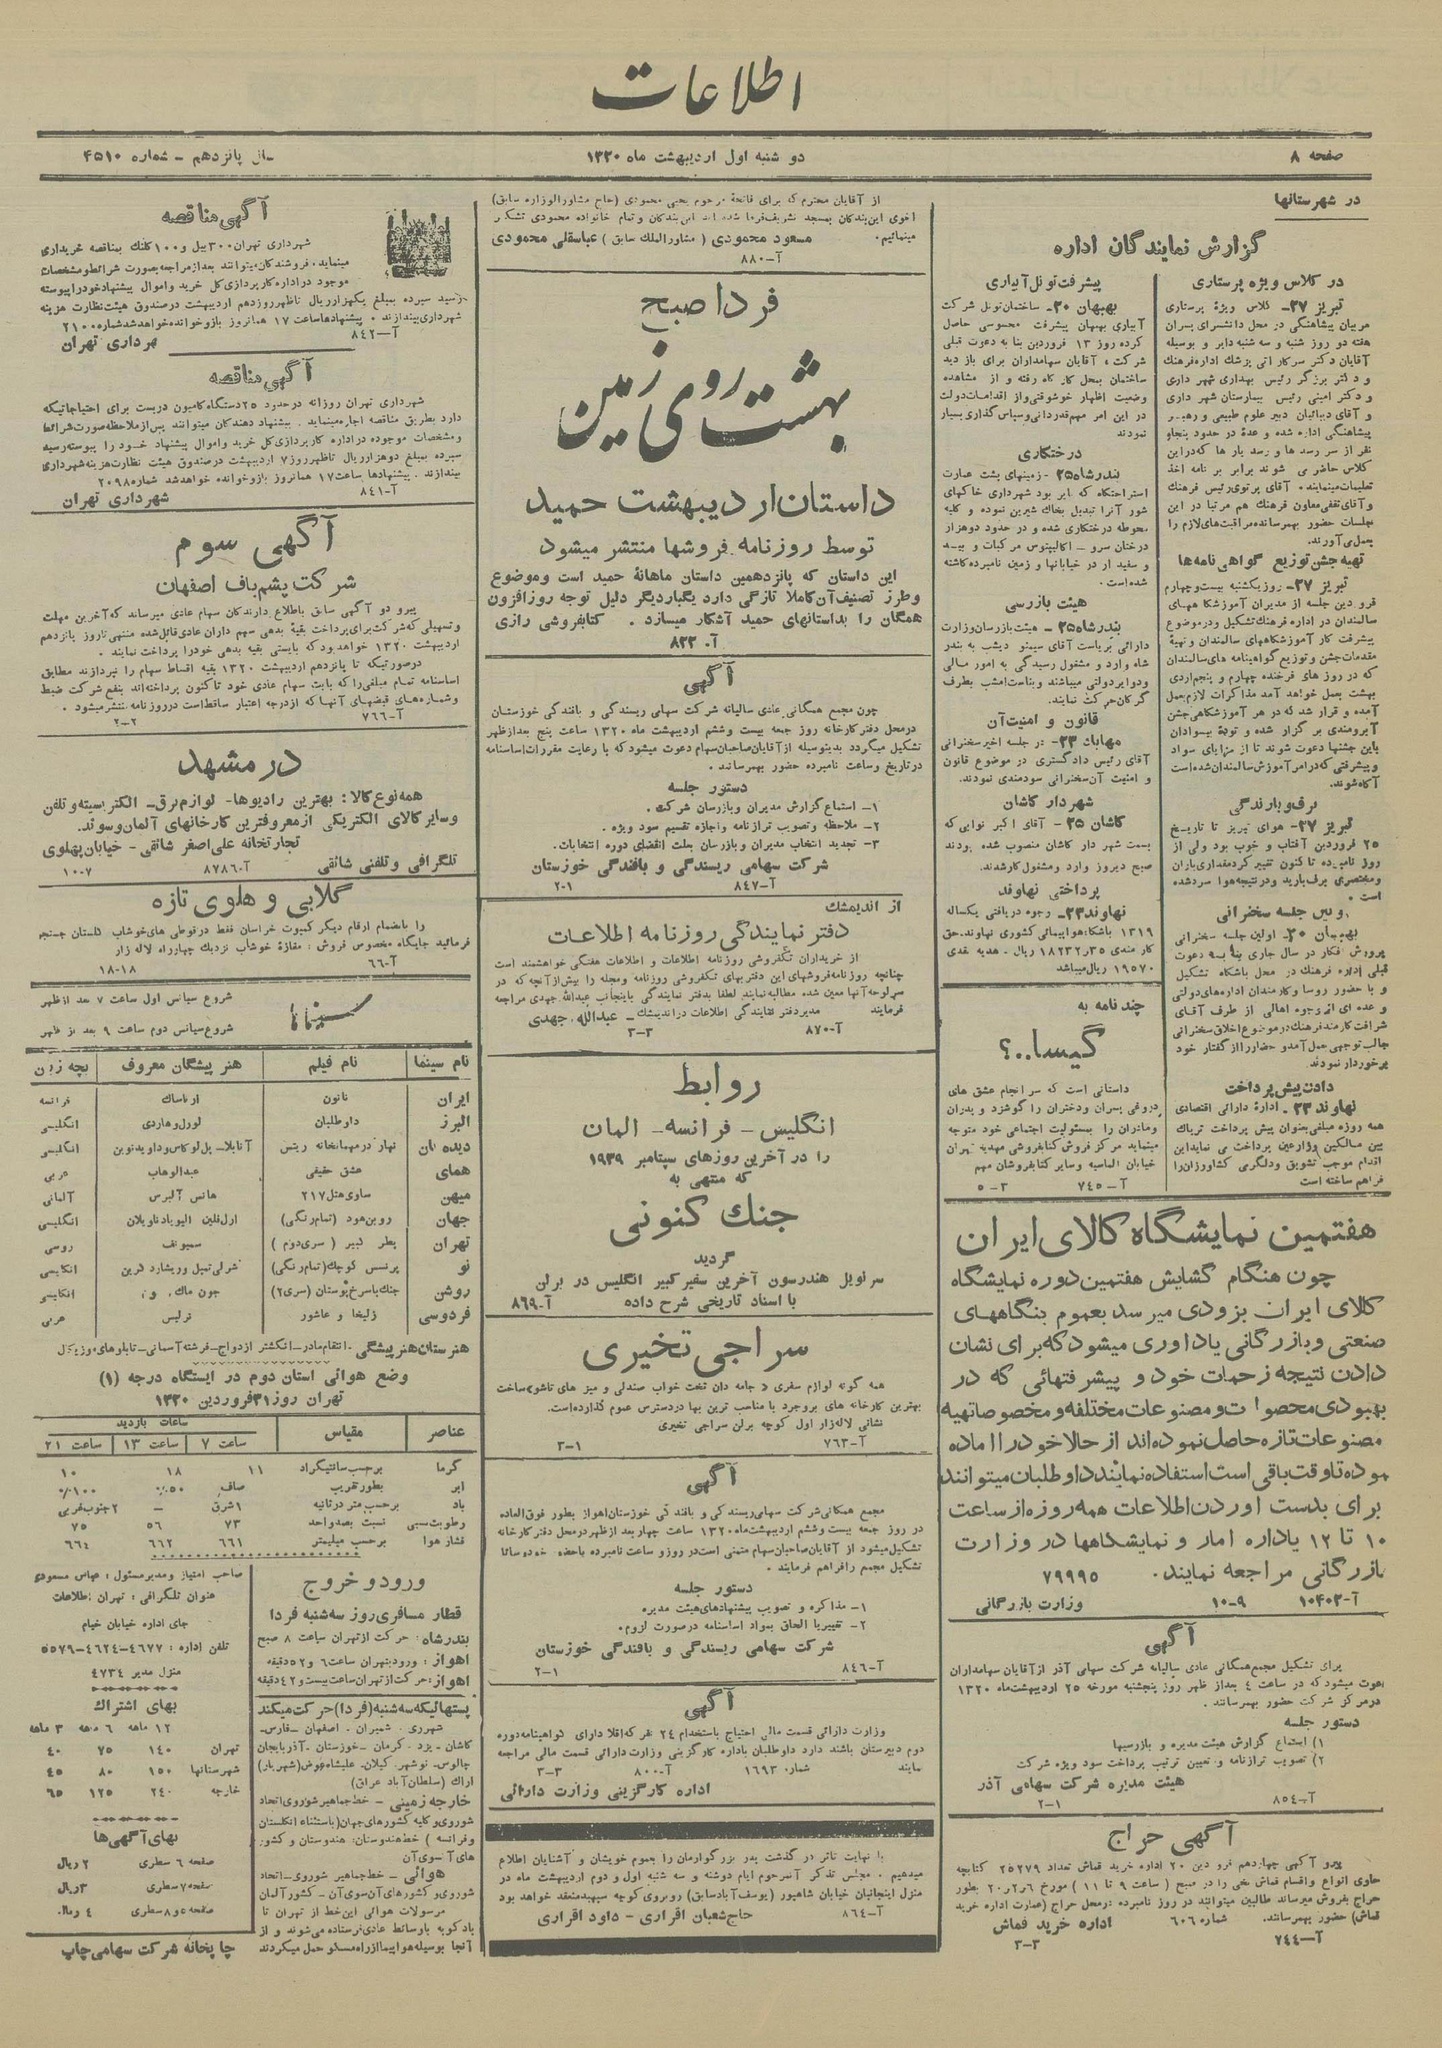 اطلاعات
صفحه ۸
دو شنبه اول اردیبهشت ماه ۱۳۲۰
سال پانزدهم - شماره ۴۵۱۰
در شهرستانها
گزارش نمایندگان اداره
در کلاس ویژه پرستاری
تبریز ۲۷- کلاس ویژهٔ پرستاری
مربیان پیشاهنگی در محل دانشسرای پسران
هفته دو روز شنبه و سه شنبه دایر و بوسیله
آقایان دکتر سرکاراتی پزشک اداره فرهنگ
و دکتر برزگر رئیس بهداری شهرداری
و دکتر امینی رئیس بیمارستان شهرداری
و آقای دیبائیان دبیر علوم طبیعی و رهبر
پیشاهنگی اداره شده و عدهٔ در حدود پنجاه
نفر از سر رسدها و رسد یارها که در این
کلاس حاضر می شوند برابر برنامه اخذ
تعلیمات مینمایند. آقای پرتوی رئیس فرهنگ
و آقای ثقفی معاون فرهنگ هم مرتبا در این
جلسات حضور بهمرسانده مراقبت‌های لازم را
بعمل می آورند.
تهیه جشن توزیع گواهی نامه‌ها
تبریز ۲۷- روز یکشنبه بیست و چهارم
فروردین جلسه از مدیران آموزشگاههای
سالمندان در اداره فرهنگ تشکیل و در موضوع
پیشرفت کار آموزشگاههای سالمندان و تهیهٔ
مقدمات جشن و توزیع گواهینامه های سالمندان
که در روز های فرخنده چهارم و پنجم اردی
بهشت بعمل خواهد آمد مذاکرات لازم بعمل
آمده و قرار شد که در هر آموزشگاهی جشن
آبرومندی برگزار شده و توده بیسوادان
باین جشنها دعوت شوند تا از مزایای سواد
و پیشرفتی که در امر آموزش سالمندان شده است
آگاه شوند.
برف و بارندگی
تبریز ۲۷- هوای تبریز تا تاریخ
۲۵ فروردین آفتاب و خوب بود ولی از
روز نامبرده تا کنون تغییر کرده مقداری باران
و مختصری برف بارید و در نتیجه هوا سرد شده
است.
اولین جلسه سخنرانی
بهبهان ۲۰- اولین جلسه سخنرانی
پرورش افکار در سال جاری بنا به دعوت
قبلی اداره فرهنگ در محل باشگاه تشکیل
و با حضور روسا و کارمندان اداره‌های دولتی
و عده ای از وجوه اهالی از طرف آقای
شرافت کارمند فرهنگ در موضوع اخلاق سخنرانی
جالب توجهی بعمل آمد و حضار را از گفتار خود
برخوردار نمودند
دادن پیش پرداخت
نهاوند ۲۳- ادارهٔ دارائی اقتصادی
همه روزه مبلغی بعنوان پیش پرداخت تریاک
بین مالکین و زارعین پرداخت می نماید این
اقدام موجب تشویق و دلگرمی کشاورزان را
فراهم ساخته است
پیشرفت تونل آبیاری
بهبهان ۲۰- ساختمان تونل شرکت
آبیاری بهبهان پیشرفت محسوسی حاصل
کرده روز ۱۳ فروردین بنا به دعوت قبلی
شرکت، آقایان سهامداران برای بازدید
ساختمان بمحل کار گاه رفته و از مشاهده
وضعیت اظهار خوشوقتی و از اقدامات دولت
در این امر مهم قدردانی و سپاس گذاری بسیار
نمودند
درختکاری
بندرشاه ۲۵- زمینهای پشت عمارت
استراحتگاه که بایر بود شهرداری خاکهای
شور آنرا تبدیل بخاک شیرین نموده و کلیه
محوطه درختکاری شده و در حدود دو هزار
درختان سرو - اکالیپتوس مرکبات و بید
و سفیدار در خیابانها و زمین نامبرده کاشته
شده است.
هیئت بازرسی
بندرشاه ۲۵- هیئت بازرسان وزارت
دارائی بریاست آقای سیمنو دیشب به بندر
شاه وارد و مشغول رسیدگی به امور مالی
و دوایر دولتی میباشند و بناست امشب بطرف
گرگان حرکت نمایند.
قانون و امنیت آن
مهاباد ۲۳- در جلسه اخیر سخنرانی
آقای رئیس دادگستری در موضوع قانون
و امنیت آن سخنرانی سودمندی نمودند.
شهردار کاشان
کاشان ۲۵- آقای اکبر نوایی که
بسمت شهردار کاشان منصوب شده بودند
صبح دیروز وارد و مشغول کار شدند.
پرداختی نهاوند
نهاوند ۲۳- وجوه دریافتی یکساله
۱۳۱۹ باشگاه هواپیمائی کشوری نهاوند.حق
کارمندی ۱۸۲۳۲٫۳۵ ریال.- هدیه نقدی
۱۹۵۷۰ ریال میباشد
چند نامه به
گیسا..؟
داستانی است که سرانجام عشق های
دروغی پسران و دختران را گوشزد و پدران
و مادران را بمسئولیت اجتماعی خود متوجه
مینماید مرکز فروش کتابفروشی مهدیه تهران
خیابان الماسیه و سایر کتابفروشان مهم
آ-۷۴۵ ۳-۵
هفتمین نمایشگاه کالای ایران
چون هنگام گشایش هفتمین دوره نمایشگاه
کالای ایران بزودی میرسد بعموم بنگاههای
صنعتی و بازرگانی یادآوری میشود که برای نشان
دادن نتیجه زحمات خود و پیشرفتهائی که در
بهبودی محصولات و مصنوعات مختلفه و مخصوصا تهیه
مصنوعات تازه حاصل نموده‌اند از حالا خود را آماده
نموده تا وقت باقی است استفاده نمایند داوطلبان میتوانند
برای بدست آوردن اطلاعات همه روزه از ساعت
۱۰ تا ۱۲ باداره آمار و نمایشگاهها در وزارت
بازرگانی مراجعه نمایند. ۷۹۹۹۵
آ-۱۰۴۰۲ ۹-۱۰ وزارت بازرگانی
آگهی
برای تشکیل مجمع همگانی عادی سالیانه شرکت سهامی آذر از آقایان سهامداران
دعوت میشود که در ساعت ۴ بعد از ظهر روز پنجشنبه مورخه ۲۵ اردیبهشت ماه ۱۳۲۰
در مرکز شرکت حضور بهمرسانند.
دستور جلسه
۱) استماع گزارش هیئت مدیره و بازرسها
۲) تصویب ترازنامه و تعیین ترتیب پرداخت سود ویژه شرکت
هیئت مدیره شرکت سهامی آذر
آ-۸۵۴ ۱-۲
آگهی حراج
پیرو آگهی چهاردهم فروردین ۲۰ اداره خرید قماش تعداد ۲۵۲۷۹ کتابچه
حاوی انواع و اقسام قماش نخی را در صبح (ساعت ۹ تا ۱۱) مورخ ۲۰٫۲٫۶ بطور
حراج بفروش میرساند طالبین میتوانند در روز نامبرده بمحل حراج (عمارت اداره خرید
قماش) حضور بهمرسانند. شماره ۶۰۶ اداره خرید قماش
آ-۷۴۴ ۳-۳
از آقایان محترم که برای فاتحهٔ مرحوم یحیی محمودی (حاج مشاورالوزاره سابق)
اخوی این بندگان بمسجد تشریف فرما شده‌اند این بندگان و تمام خانواده محمودی تشکر
مینمائیم. مسعود محمودی (مشاورالملک سابق) عباسقلی محمودی
آ-۸۸۰
فردا صبح
بهشت روی زمین
داستان اردیبهشت حمید
توسط روزنامه فروشها منتشر میشود
این داستان که پانزدهمین داستان ماهانهٔ حمید است و موضوع
و طرز تصنیف آن کاملا تازگی دارد یکبار دیگر دلیل توجه روزافزون
همگان را بداستانهای حمید آشکار میسازد. کتابفروشی رازی
آ.۸۲۲
آگهی
چون مجمع همگانی عادی سالیانه شرکت سهامی ریسندگی و بافندگی خوزستان
در محل دفتر کارخانه روز جمعه بیست و ششم اردیبهشت ماه ۱۳۲۰ ساعت پنج بعد از ظهر
تشکیل میگردد بدینوسیله از آقایان صاحبان سهام دعوت میشود که با رعایت مقررات اساسنامه
در تاریخ و ساعت نامبرده حضور بهمرسانند.
دستور جلسه
۱- استماع گزارش مدیران و بازرسان شرکت.
۲- ملاحظه و تصویب ترازنامه و اجازه تقسیم سود ویژه.
۳- تجدید انتخاب مدیران و بازرسان بعلت انقضای دوره انتخابات.
شرکت سهامی ریسندگی و بافندگی خوزستان
آ-۸۴۷ ۱-۲
از اندیمشک
دفتر نمایندگی روزنامه اطلاعات
از خریداران تکفروشی روزنامه اطلاعات و اطلاعات هفتگی خواهشمند است
چنانچه روزنامه فروشهای این دفتر بهای تکفروشی روزنامه و مجله را بیش از آنچه که در
سرلوحه آنها معین شده مطالبه نمایند لطفا بدفتر نمایندگی باینجانب عبدالله جهدی مراجعه
فرمایند مدیر دفتر نمایندگی اطلاعات در اندیمشک - عبدالله جهدی
آ-۸۷۰ ۳-۳
روابط
انگلیس - فرانسه - آلمان
را در آخرین روزهای سپتامبر ۱۹۳۹
که منتهی به
جنک کنونی
گردید
سرنویل هندرسون آخرین سفیر کبیر انگلیس در برلن
با اسناد تاریخی شرح داده آ-۸۶۹
سراجی تخیری
همه گونه لوازم سفری «جامه دان تخت خواب صندلی و میز های تاشو» ساخت
بهترین کارخانه های بروجرد با مناسب ترین بها در دسترس عموم گذارده است.
نشانی لاله‌زار اول کوچه برلن سراجی تخیری
آ-۷۶۳ ۱-۳
آگهی
مجمع همگانی شرکت سهامی ریسندگی و بافندگی خوزستان اهواز بطور فوق العاده
در روز جمعه بیست و ششم اردیبهشت ماه ۱۳۲۰ ساعت چهار بعد از ظهر در محل دفتر کارخانه
تشکیل میشود از آقایان صاحبان سهام متمنی است در روز و ساعت نامبرده با حضور خود وسائل
تشکیل مجمع را فراهم فرمایند.
دستور جلسه
۱- مذاکره و تصویب پیشنهادهای هیئت مدیره
۲- تغییر یا الحاق بمواد اساسنامه در صورت لزوم.
شرکت سهامی ریسندگی و بافندگی خوزستان
آ-۸۴۶ ۱-۲
آگهی
وزارت دارائی قسمت مالی احتیاج باستخدام ۲۴ نفر که اقلا دارای گواهینامه دوره
دوم دبیرستان باشند دارد داوطلبان باداره کارگزینی وزارت دارائی قسمت مالی مراجعه
نمایند شماره ۱۶۹۳ آ-۸۰۰ ۳-۳
اداره کارگزینی وزارت دارائی
با نهایت تاثر در گذشت پدر بزرگوارمان را بعموم خویشان و آشنایان اطلاع
میدهیم. مجلس تذکر آنمرحوم ایام دوشنبه و سه شنبه اول و دوم اردیبهشت ماه در
منزل اینجانبان خیابان شاهپور (یوسف آباد سابق) روبروی کوچه سپهبد منعقد خواهد بود
آ-۸۶۴ حاج شعبان اقراری - داود اقراری
آگهی مناقصه
شهرداری تهران ۳۰۰ بیل و ۱۰۰ کلنک بمناقصه خریداری
مینماید. فروشندگان میتوانند بعد از مراجعه بصورت شرائط و مشخصات
موجود در اداره کارپردازی کل خرید و اموال پیشنهاد خود را بپیوست
رسید سپرده بمبلغ یکهزار ریال تا ظهر روز دهم اردیبهشت در صندوق هیئت نظارت هزینه
شهرداری بیندازند. پیشنهادها ساعت ۱۷ همانروز باز و خوانده خواهد شد شماره ۲۱۰۰
آ-۸۴۲ شهرداری تهران
آگهی مناقصه
شهرداری تهران روزانه در حدود ۲۵ دستگاه کامیون دربست برای احتیاجاتیکه
دارد بطریق مناقصه اجاره مینماید. پیشنهاد دهندگان میتوانند پس از ملاحظه صورت شرائط
و مشخصات موجوده در اداره کارپردازی کل خرید و اموال پیشنهاد خود را بپیوست رسید
سپرده بمبلغ دو هزار ریال تا ظهر روز ۷ اردیبهشت در صندوق هیئت نظارت هزینه شهرداری
بیندازند. پیشنهادها ساعت ۱۷ همانروز باز و خوانده خواهد شد شماره ۲۰۹۸
آ-۸۴۱ شهرداری تهران
آگهی سوم
شرکت پشم باف اصفهان
پیرو دو آگهی سابق باطلاع دارندگان سهام عادی میرساند که آخرین مهلت
و تسهیلی که شرکت برای پرداخت بقیهٔ بدهی سهم داران عادی قائل شده منتهی تا روز پانزدهم
اردیبهشت ۱۳۲۰ خواهد بود که بایستی بقیه بدهی خود را پرداخت نمایند.
در صورتیکه تا پانزدهم اردیبهشت ۱۳۲۰ بقیه اقساط سهام را نپردازند مطابق
اساسنامه تمام مبلغی را که بابت سهام عادی خود تا کنون پرداخته‌اند بنفع شرکت ضبط
و شماره‌های قبضهای آنها که از درجه اعتبار ساقط است در روزنامه منتشر میشود.
آ-۷۶۶ ۲-۲
در مشهد
همه نوع کالا: بهترین رادیوها- لوازم برق- الکتریسیته و تلفن
و سایر کالای الکتریکی از معروفترین کارخانهای آلمان و سوئد.
تجارتخانه علی اصغر شائقی - خیابان پهلوی
تلگرافی و تلفنی شائقی آ-۸۷۸۶ ۷-۱۰۰
گلابی و هلوی تازه
را بانضمام ارقام دیگر کمپوت خراسان فقط در قوطی های خوشاب
فرمائید جایگاه مخصوص فروش: مغازهٔ خوشاب نزدیک چهارراه لاله زار
آ-۶۶ ۱۸-۱۸
سینماها
شروع سیانس اول ساعت ۷ بعد از ظهر
شروع سیانس دوم ساعت ۹ بعد از ظهر
نام سینما نام فیلم هنر پیشگان معروف بچه زبان
ایران نانون ارناساک فرانسه
البرز داوطلبان لورل و هاردی انگلیسی
دیده بان نهار در مهمانخانه ریتس آنابلا- پل لوکاس و داوید نیون انگلیسی
همای عشق حقیقی عبدالوهاب عربی
میهن ساوی هتل ۲۱۷ هانس آلبرس آلمانی
جهان روبن هود (تمام رنگی) ارل فلین الیویا دناویلان انگلیسی
تهران پطر کبیر (سری دوم) سمیونف روسی
نو پرنسس کوچک (تمام رنگی) شرلی تمپل و ریشارد گرین انگلیسی
روشن جنک با سرخ پوستان (سری ۲) جون ماک انگلیسی
فردوسی زلیخا و عاشور نرلیس عربی
هنرستان هنرپیشگی - انتقام مادر- انگشتر ازدواج- فرشته آسمانی- تابلوهای موزیکال
وضع هوائی استان دوم در ایستگاه درجه (۱)
تهران روز ۳۱ فروردین ۱۳۲۰
عناصر مقیاس ساعات بازدید
ساعت ۷ ساعت ۱۳ ساعت ۲۱
گرما برحسب سانتیگراد ۱۱ ۱۸ ۱۰
ابر بطور تقریب صاف ۵۰٪ ۱۰۰٪
باد برحسب متر در ثانیه ۱ شرق - ۲ جنوب غربی
رطوبت نسبی نسبت بصد واحد ۷۳ ۵۶ ۷۵
فشار هوا برحسب میلیمتر ۶۶۱ ۶۶۲ ۶۶۴
ورود و خروج
قطار مسافری روز سه شنبه فردا
بندرشاه: حرکت از تهران ساعت ۸ صبح
اهواز: ورود بتهران ساعت ۶ و ۵۲ دقیقه
اهواز: حرکت از تهران ساعت بیست و ۴۲ دقیقه
پستهائیکه سه شنبه (فردا) حرکت میکند
شهر ری. شمیران. اصفهان - فارس-
کاشان - یزد. کرمان - خوزستان - آذربایجان
چالوس - نوشهر. گیلان- علیشاه عوض (شهریار)
اراک (سلطان آباد عراق)
خارجه زمینی - خط جماهیر شوروی اتحاد
شوروی و کلیه کشورهای جهان (باستثناء انگلستان
و فرانسه) خط هندوستان: هندوستان و کشور
های آنسوی آن
هوائی - خط جماهیر شوروی - اتحاد
شوروی و کشورهای آن سوی آن - کشور آلمان
مرسولات هوائی این خط از تهران تا
بادکوبه با وسائط عادی فرستاده می‌شوند و از
آنجا بوسیله هواپیما از راه مسکو حمل میگردند
صاحب امتیاز و مدیر مسئول: عباس مسعودی
عنوان تلگرافی: تهران اطلاعات
جای اداره خیابان خیام
تلفن اداره: ۴۶۷۷-۴۶۲۴-۵۵۷۹
منزل مدیر ۴۷۳۴
بهای اشتراک
۱۲ ماهه ۶ ماهه ۳ ماهه
تهران ۱۴۰ ۷۵ ۴۰
شهرستانها ۱۵۰ ۸۰ ۴۵
خارجه ۲۴۰ ۱۲۵ ۶۵
بهای آگهی‌ها
صفحه ۶ سطری ۲ ریال
صفحه ۷ سطری ۳ ریال
صفحه ۵ و ۸ سطری ۴ ریال
چاپخانه شرکت سهامی چاپ